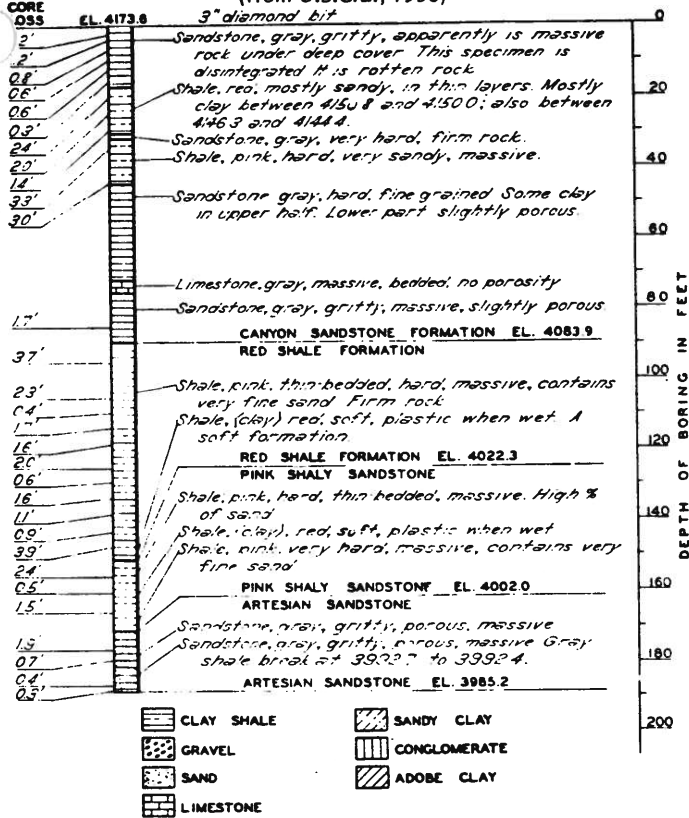 CORE
OSS
EL. 4173.6
3" diamond bit
Sandstone, gray, gritty, apparently is massive
rock under deep cover This specimen is
disintegrated It is rotten rock
Shale, red, mostly sandy, in thin layers. Mostly
clay between 4150.8 and 4150.0; also between
4146.3 and 4144.4.
Sandstone, gray, very hard, firm rock.
Shale, pink, hard, very sandy, massive.
Sandstone gray, hard, fine grained Some clay
in upper half. Lower part slightly porous.
Limestone, gray, massive, bedded, no porosity
Sandstone, gray, gritty, massive, slightly porous
CANYON SANDSTONE FORMATION EL. 4083.9
RED SHALE FORMATION
Shale, pink, thin-bedded, hard, massive, contains
very fine sand Firm rock
Shale, (clay) red, soft, plastic when wet. A
soft formation.
RED SHALE FORMATION EL. 4022.3
PINK SHALY SANDSTONE
Shale, pink, hard, thin bedded, massive. High %
of sand
Shale, (clay), red, soft, plastic when wet
Shale, pink, very hard, massive, contains very
fine sand
PINK SHALY SANDSTONE EL. 4002.0
ARTESIAN SANDSTONE
Sandstone, gray, gritty, porous, massive
Sandstone, gray, gritty, porous, massive Gray
shale break at to 3992.4.
ARTESIAN SANDSTONE EL. 3985.2
.2'
.2'
0.8'
0.6'
0.6'
0.3'
2.4'
2.0'
1.4'
3.3'
3.0'
1.7'
3.7'
2.3'
0.4'
1.6'
2.0'
0.6'
1.6'
1.1'
0.9'
3.9'
2.4'
0.5'
1.5'
1.9'
0.7'
0.4'
0.3'
0
20
40
60
80
100
120
140
160
180
200
DEPTH OF BORING IN FEET
CLAY SHALE
GRAVEL
SAND
LIMESTONE
SANDY CLAY
CONGLOMERATE
ADOBE CLAY